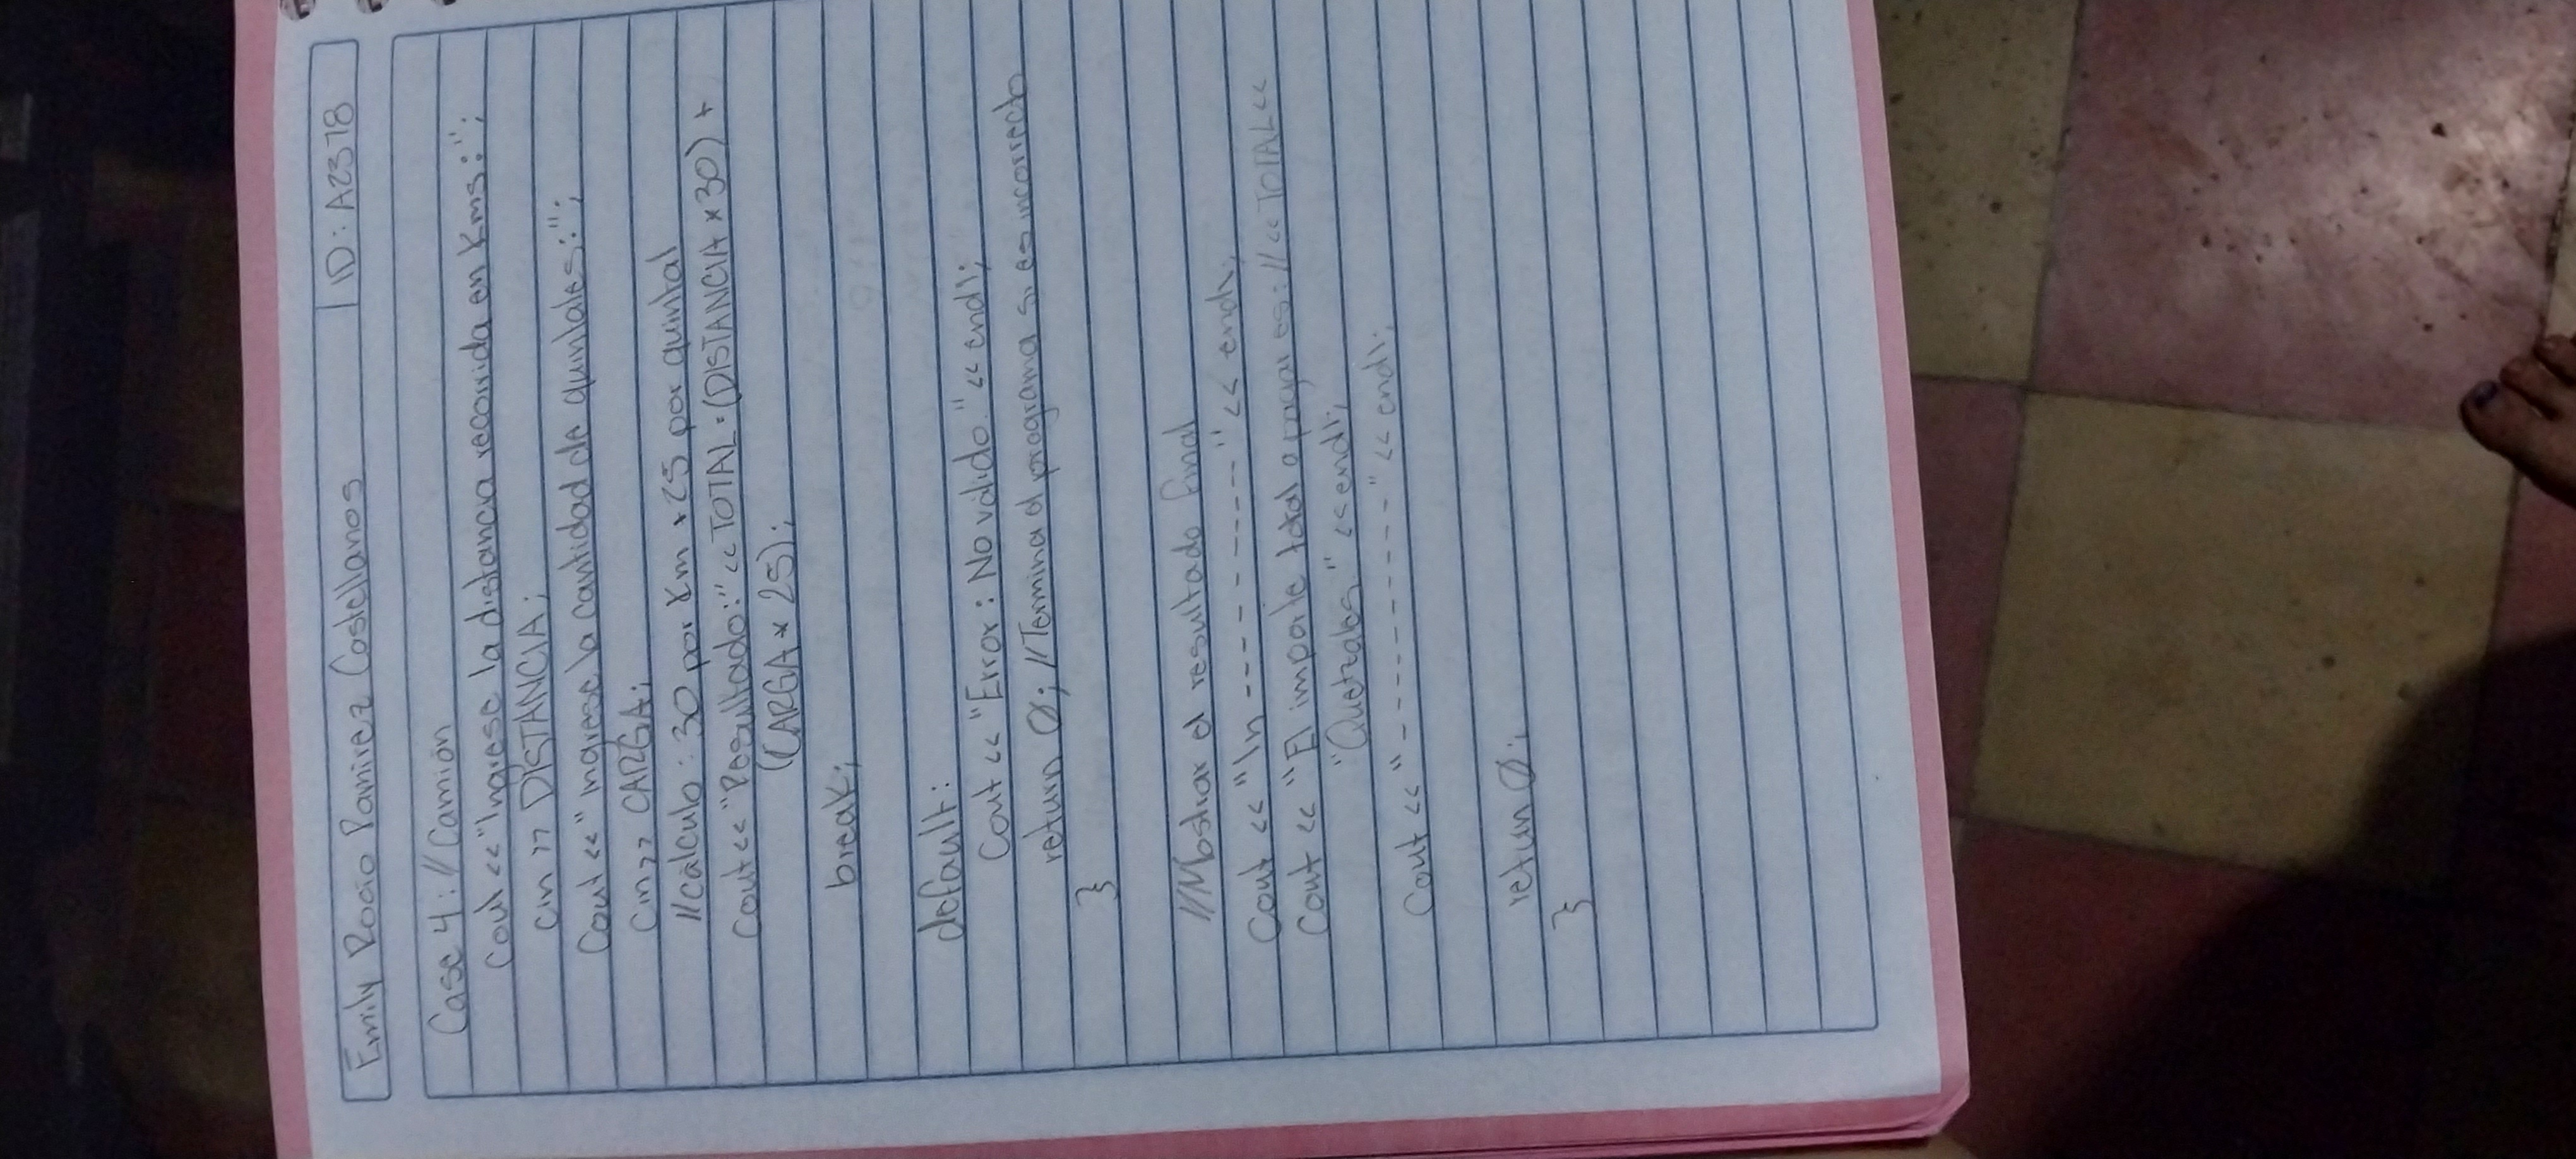 Emily Rocío Ramirez Castellanos
ID: A2378
Case 4: // Camión
Cout << "Ingrese la distancia recorrida en Kms:";
Cin >> DISTANCIA;
Cout << "Ingrese la cantidad de quintales:";
Cin >> CARGA;
// Cálculo: 30 por Km + 25 por quintal
Cout << "Resultado:" << TOTAL = (DISTANCIA * 30) +
(CARGA * 25);
break;
default:
Cout << "Error: No válido." << endl;
return 0; // Termina el programa si es incorrecto
}
// Mostrar el resultado final
Cout << "\n ----------" << endl;
Cout << "El importe total a pagar es: // << TOTAL <<
"Quetzales" << endl;
Cout << "-----------" << endl;
return 0;
}